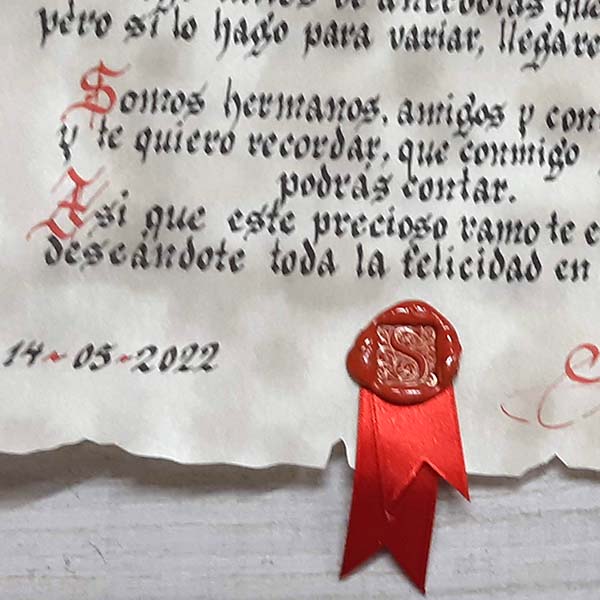 de anécdotas que
pero si lo hago para variar, llegare
Somos hermanos, amigos y con
y te quiero recordar, que conmigo
podrás contar.
Así que este precioso ramo te e
deseándote toda la felicidad en
14-05-2022
S